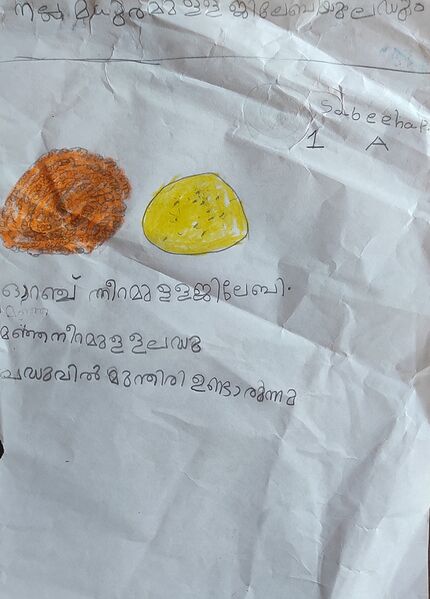 നല്ല മധുരമുള്ള ജിലേബിയും ലഡുവും
Sabeeha P
1 A
ഓറഞ്ച് നീറമുള്ളജിലേബി.
മഞ്ഞനീറമുള്ളലഡു
ലഡുവിൽ മുന്തിരി ഉണ്ടാരുന്നു